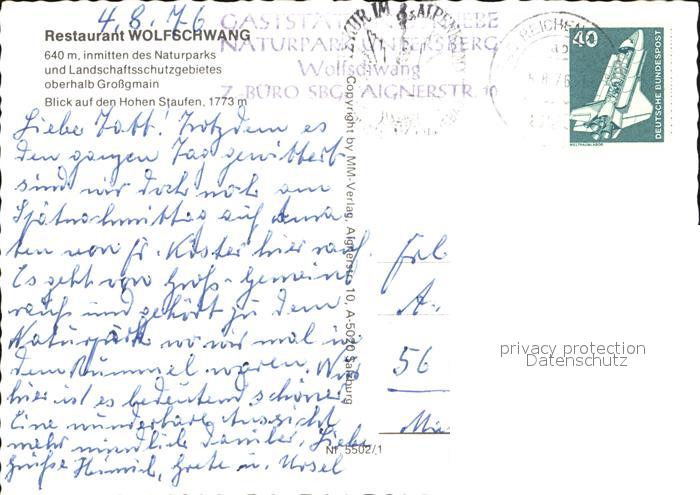 4.8.76
Restaurant WOLFSCHWANG
640 m, inmitten des Naturparks
und Landschaftsschutzgebietes
oberhalb Großgmain
Blick auf den Hohen Staufen, 1773 m
NATURPARK UNTERSBERG
Wolfschwang
Z-BÜRO SBG AIGNERSTR. 10
40
DEUTSCHE BUNDESPOST
WELTRAUMLABOR
Liebe Trotzdem es
den ganzen Tag gewittert
sind wir doch noch am
Spätnachmittag auf
ten von Fr. Köster hier rauf.
Es geht von Groß-Gmein
rauf und gehört zu dem
Naturpark wo wir mal in
dem waren. Nur
hier ist es bedeutend schöner
Eine wunderbare Aussicht
mehr mündlich darüber. Liebe
Grüße Grete u. Ursel
Copyright by MM-Verlag, Aignerstr. 10, A-5020 Salzburg
Nr. 5502/1
Frl.
A.
56
privacy protection
Datenschutz